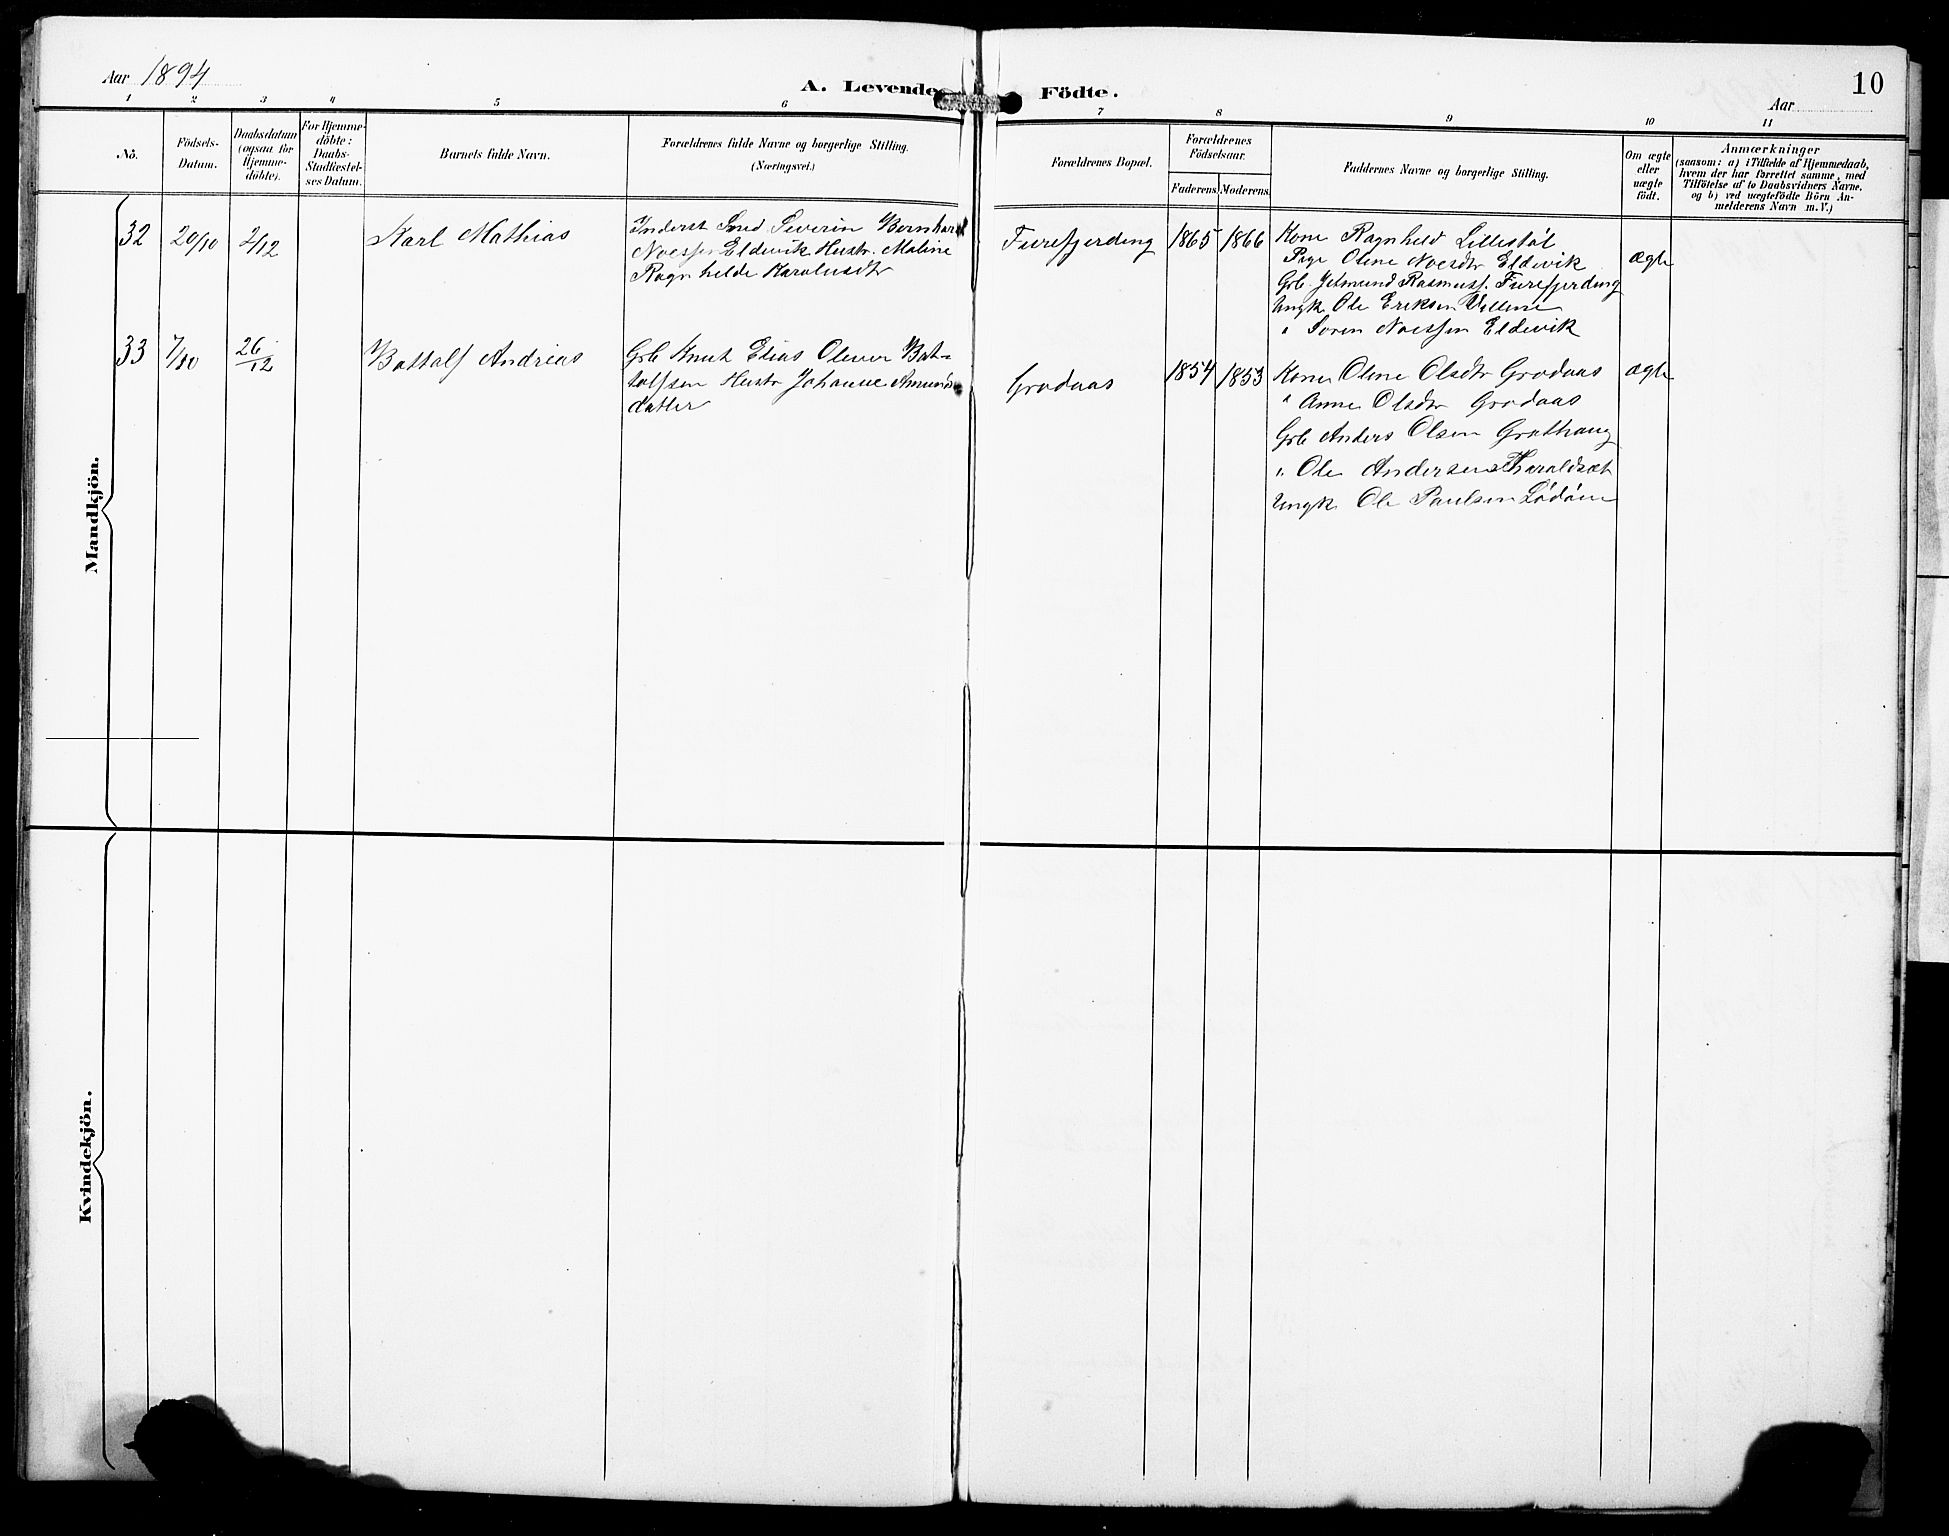 Aar 1894
A. Levende Födte.
10
Aar
1 2 3 4 5 6 7 8 9 10 11
No.
Födsels-
Datum.
Daabsdatum
(ogsaa for
Hjemme-
döbte).
For Hjemme-
döbte:
Daabs-
Stadfæstel-
ses Datum.
Barnets fulde Navn.
Forældrenes fulde Navne og borgerlige Stilling.
(Næringsvei.)
Forældrenes Bopæl.
Forældrenes
Födselsaar.
Faderens. Moderens.
Faddernes Navne og borgerlige Stilling.
Om ægte
eller
uægte
födt.
Anmærkninger
(saasom: a) i Tilfælde af Hjemmedaab,
hvem der har forrettet samme, med
Tilföielse af to Daabsvidners Navne,
og b) ved uægtefödte Börn An-
melderens Navn m. V.)
Mandkjön.
32
20/10
2/12
Karl Mathias
Inderst Smed Severin Bernhard
Noessen Eldevik Hustr. Maline
Ragnhilde Karolusdtr
Furefjerding
1865
1866
Kone Ragnheld Lillestøl
Pige Oline Noesdtr Eldevik
Grb. Jetmund Rasmuss. Furefjerding
Ungk Ole Eriksen
" Soren Noessen Eldevik
ægte
33
7/10
26/12
Battolf Andreas
Grb Knut Elias Olever Bat-
tolfsen Hustr Johanne Amunds
datter
Grodaas
1854
1853
Kone Oline Olsdtr Grodaas
" Anne Olsdtr Grodaas
Grb Anders Olsen Grothaug
" Ole Andersen Haraldsæt
Ungk Ole Paulsen Lødøen
ægte
Kvindekjön.